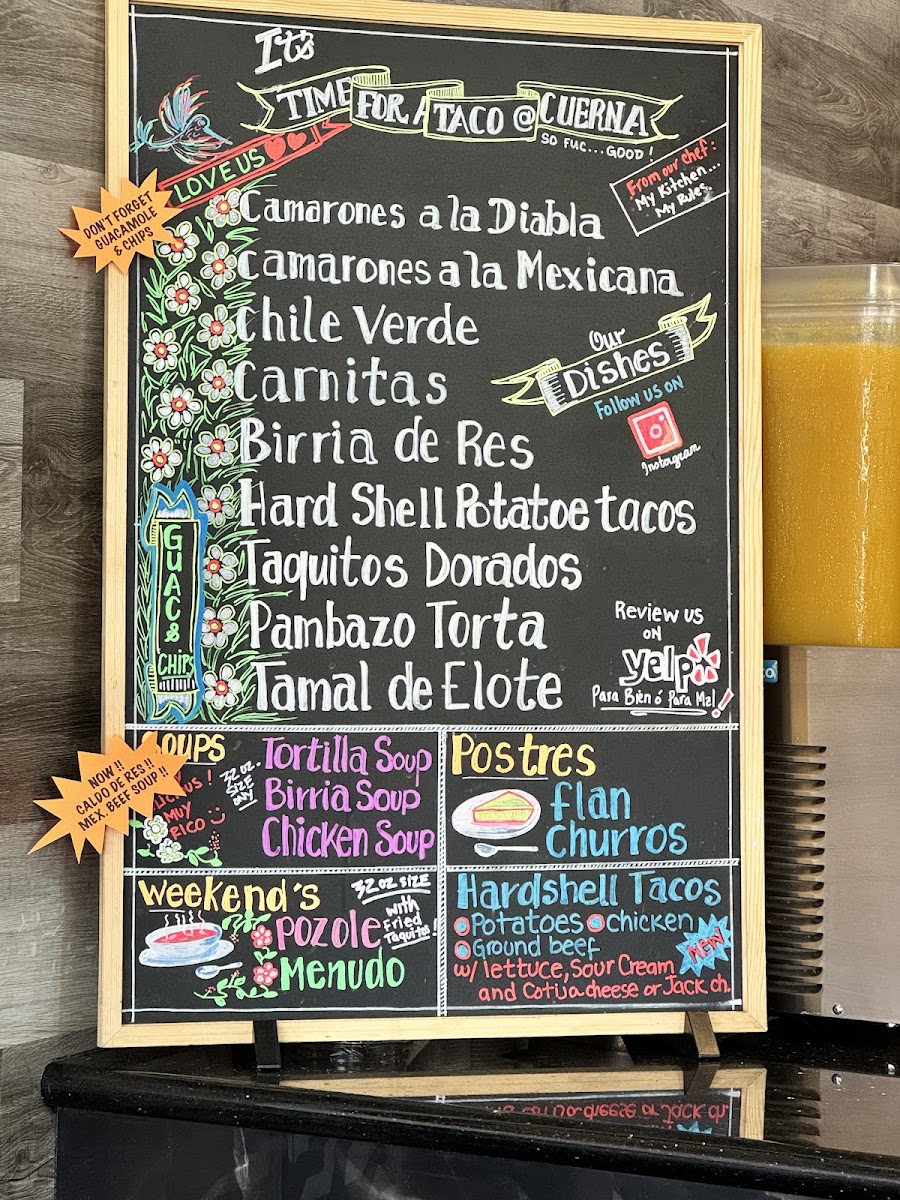 It's
TIME FOR A TACO @ CUERNA
SO FUC...GOOD!
LOVE US
From our chef:
My Kitchen...
My Rules.
DON'T FORGET
GUACAMOLE
& CHIPS
Camarones a la Diabla
Camarones a la Mexicana
Chile Verde
Carnitas
Birria de Res
Hard Shell Potatoe tacos
Taquitos Dorados
Pambazo Torta
Tamal de Elote
Our
Dishes
Follow us on
Instagram
GUACS
CHIPS
Review us
on
yelp
Para Bien ó Para Mal!
NOW !!
CALDO DE RES !!
MEX. BEEF SOUP !!
Soups
32 oz.
SIZE
MUY
RICO
Tortilla Soup
Birria Soup
Chicken Soup
Postres
flan
Churros
Weekend's
32 oz SIZE
with
Fried
Taquitos!
POZOLE
Menudo
Hardshell Tacos
Potatoes chicken
Ground beef
NEW
w/ lettuce, Sour Cream
and Cotija cheese or Jack ch.